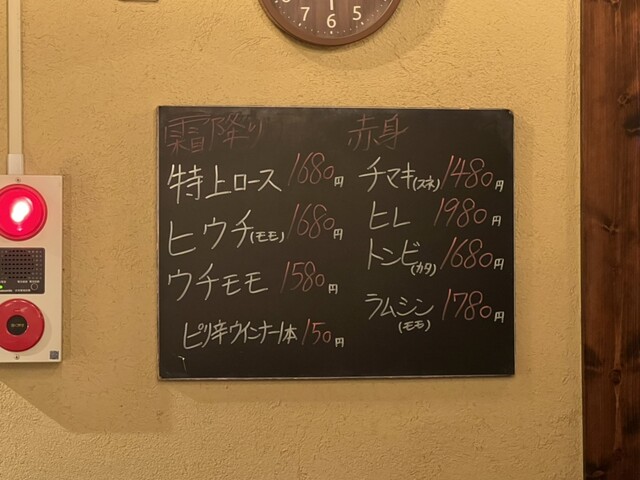 7 6 5
霜降り
特上ロース 1680円
ヒウチ(モモ) 1680円
ウチモモ 1580円
ピリ辛ウインナー1本 150円
赤身
チマキ(スネ) 1480円
ヒレ 1980円
トンビ(カタ) 1680円
ラムシン(モモ) 1780円